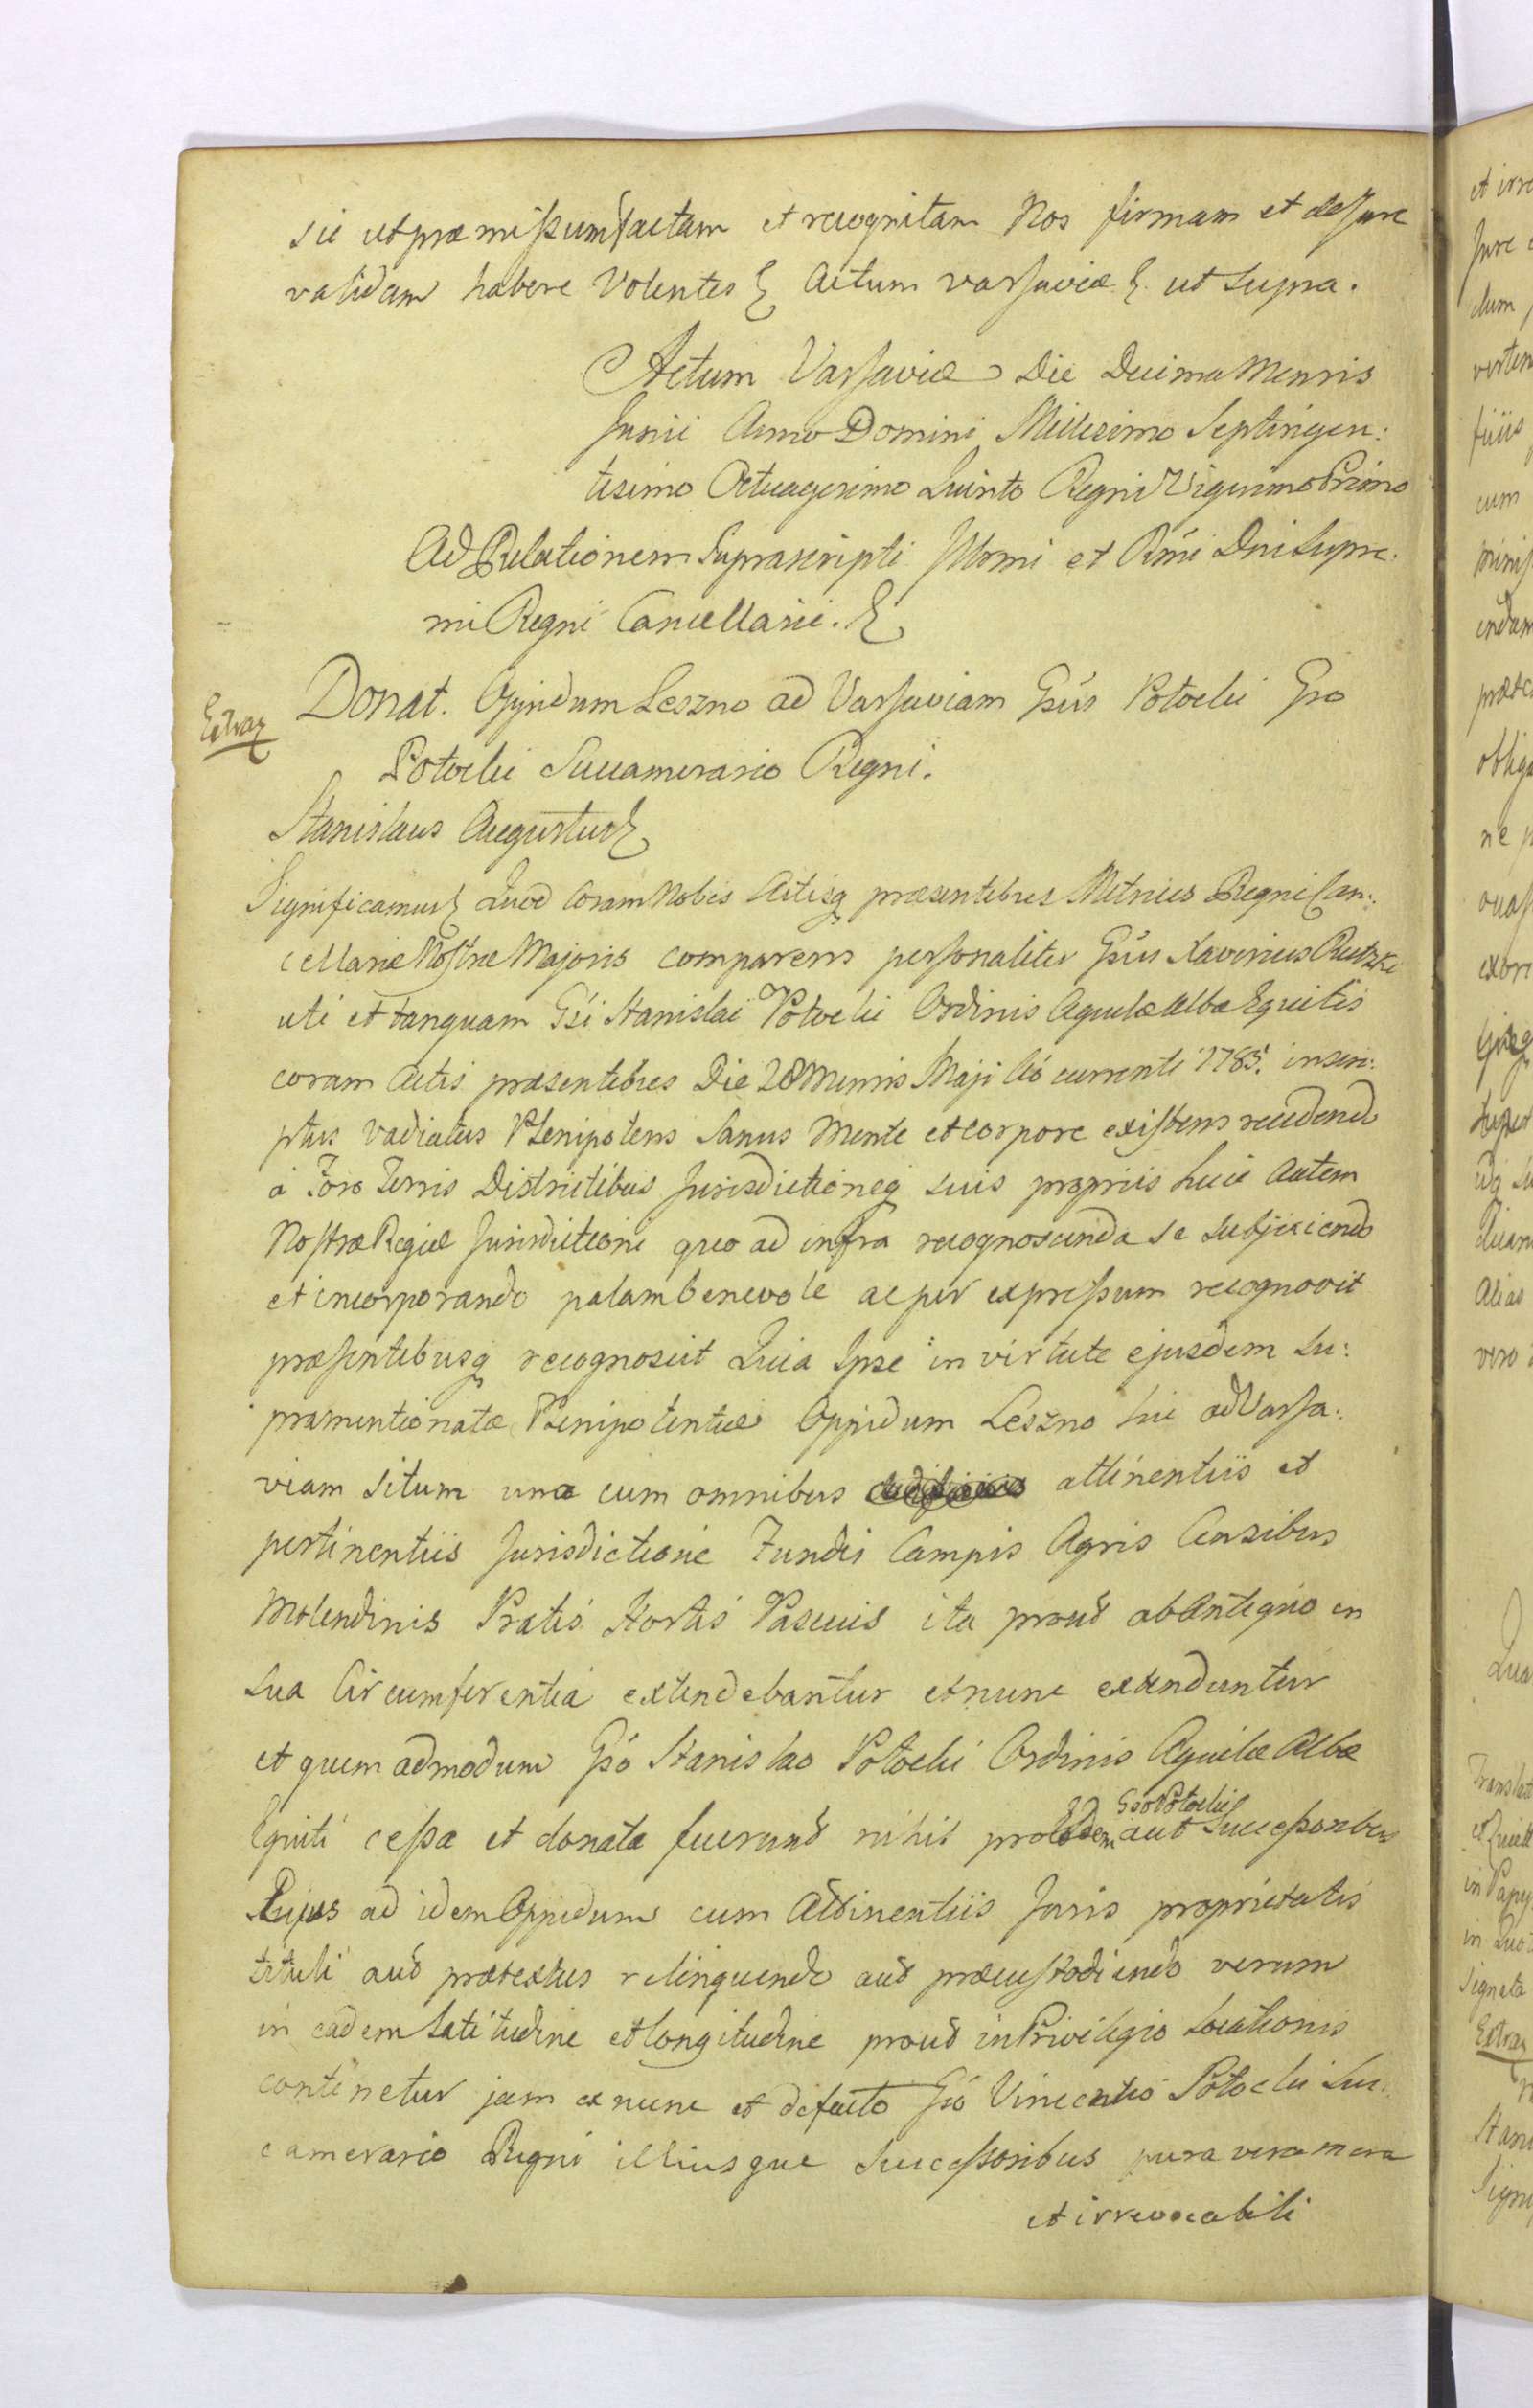 sic ut præmissum factam et recognitam Nos firmam et de Jure
validam habere Volentes & Actum varsaviæ & ut supra.
Actum Varsaviæ Die Decima Mensis
Junii Anno Domini Millesimo Septingen:
tesimo Octuagesimo Quinto Regni Vigesimo Primo
Ad Relationem Suprascripti Illmi et Rmi Dni Supre:
mi Regni Cancellarii. &
Extrax
Donat. Oppidum Leszno ad Varsaviam Gsus Potocki Gso
Potocki Succamerario Regni.
Stanislaus Augustus &
Significamus & Quod Coram Nobis Actisq præsentibus Metrices Regni Can:
cellariæ Nostræ Majoris comparens personaliter Gsus Xaverius Rutzki
uti et tanquam Gsi Stanislai Potocki Ordinis Aquilæ Albæ Equitis
coram Actis præsentibus Die 28 Mensis Maji Ao currenti 1785. inscri:
ptus vadiatus Plenipotens Sanus Mente et corpore existens recedendo
á Foro Terris Districtibus Jurisdictioneq suis propriis huic Autem
Nostræ Regiæ Jurisdictioni quo ad infra recognoscenda se subjiciendo
et incorporando palam benevole ac per expressum recognovit
præsentibusq recognoscit Quia Ipse in virtute ejusdem su:
pramentionatæ Plenipotentiæ Oppidum Leszno hic ad Varsa:
viam situm una cum omnibus attinentiis et
pertinentiis Jurisdictione Fundis Campis Agris Censibus
Molendinis Pratis Hortis Pascuis ita prout ab Antiquo in
sua Circumferentia extendebantur et nunc extenduntur
et quem admodum Gso Stanislao Potocki Ordinis Aquilæ Albæ
Equiti cessa et donata fuerunt nihil pro eodem Gso Potocki aut Successoribus
Ejus ad idem Oppidum cum Attinentiis Juris proprietatis
tituli aut prætextus relinquendo aut præcustodiendo verum
in eadem latitudine et longitudine prout in Privilegio Locationis
continetur jam ex nunc et de facto Gso Vincentio Potocki Suc:
camerario Regni illiusque Successoribus pura vera mera
et irrevocabili